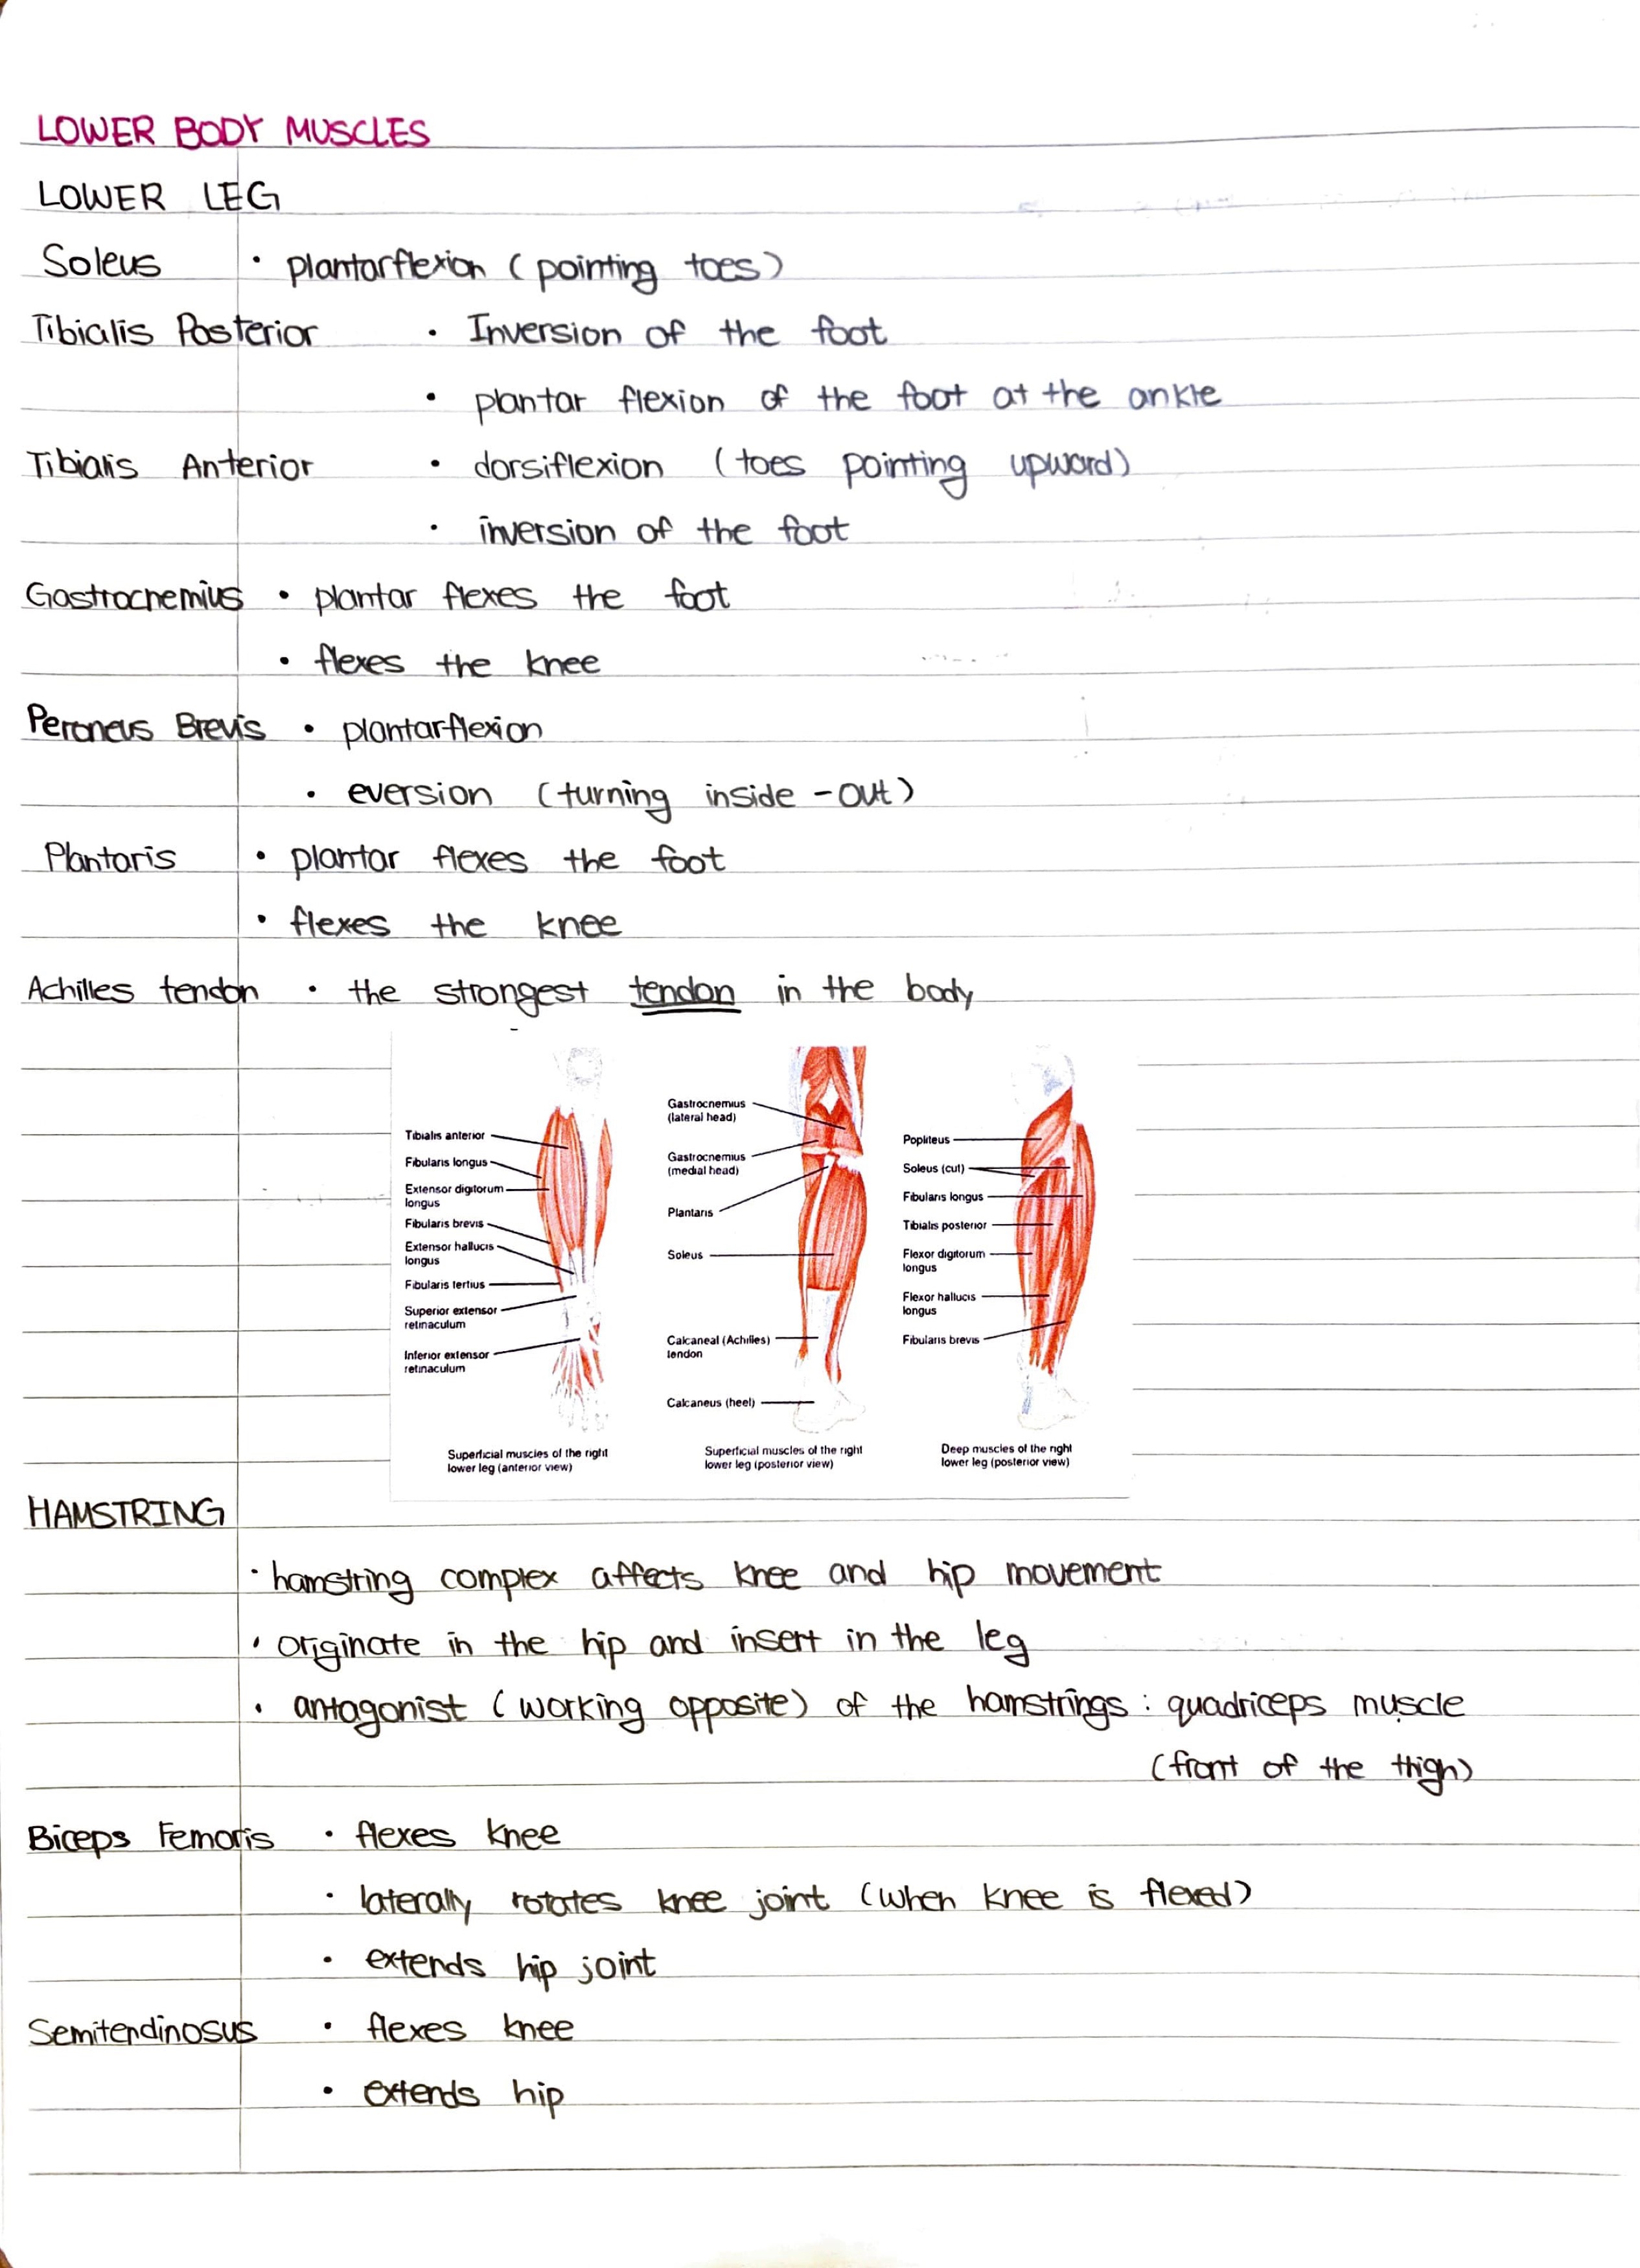 LOWER BODY MUSCLES
LOWER LEG
Soleus • plantarflexion (pointing toes)
Tibialis Posterior • Inversion of the foot
• plantar flexion of the foot at the ankle
Tibialis Anterior • dorsiflexion (toes pointing upward)
• inversion of the foot
Gastrocnemius • plantar flexes the foot
• flexes the knee
Peroneus Brevis • plantarflexion
• eversion (turning inside-out)
Plantaris • plantar flexes the foot
• flexes the knee
Achilles tendon • the strongest tendon in the body
Tibialis anterior
Fibularis longus
Extensor digitorum
longus
Fibularis brevis
Extensor hallucis
longus
Fibularis tertius
Superior extensor
retinaculum
Inferior extensor
retinaculum
Superficial muscles of the right
lower leg (anterior view)
Gastrocnemius
(lateral head)
Gastrocnemius
(medial head)
Plantaris
Soleus
Calcaneal (Achilles)
tendon
Calcaneus (heel)
Superficial muscles of the right
lower leg (posterior view)
Popliteus
Soleus (cut)
Fibularis longus
Tibialis posterior
Flexor digitorum
longus
Flexor hallucis
longus
Fibularis brevis
Deep muscles of the right
lower leg (posterior view)
HAMSTRING
• hamstring complex affects knee and hip movement
• originate in the hip and insert in the leg
• antagonist (working opposite) of the hamstrings : quadriceps muscle
(front of the thigh)
Biceps Femoris • flexes knee
• laterally rotates knee joint (when knee is flexed)
• extends hip joint
Semitendinosus • flexes knee
• extends hip